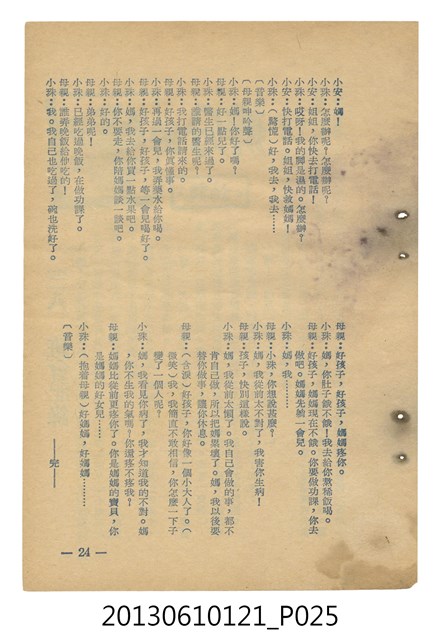 小安：媽！
小珠：怎麼辦呢？怎麼辦呢？
小安：姐姐，你快去打電話！
小珠：哎呀！我的腳是濕的。怎麼辦？
小安：快打電話。姐姐，快救媽媽！
小珠：（驚慌）好，我去，我去……
（音樂）
（母親呻吟聲）
小珠：媽！你好了嗎？
母親：好一點兒了。
小珠：醫生已經來過了。
母親：誰請的醫生呢？
小珠：我打電話請來的。
母親：好孩子，你眞懂事。
小珠：再過一會兒，我弄藥水給你喝。
母親：好孩子，好孩子，等一會兒喝好了。
小珠：媽，我去給你買一點水果吧。
母親：你不要走，你陪媽媽談一談吧。
小珠：好的。
母親：弟弟呢！
小珠：已經吃過晚飯，在做功課了。
母親：誰弄晚飯給他吃的！
小珠：我。我自己也吃過了，碗也洗好了。
母親：好孩子，好孩子，媽媽疼你。
小珠：媽，你肚子餓不餓！我去給你熬稀飯喝。
母親：好孩子，媽媽現在不餓。你要做功課，你去
做吧。媽媽先躺一會兒。
小珠：媽，我………
母親：小珠，你想說甚麼？
小珠：媽，我從前太不對了，我害你生病！
母親：孩子，快別這樣說。
小珠：媽，我從前太懶了。我自己會做的事，都不
肯自己做，所以把媽累壞了。媽，我以後要
替你做事，讓你休息。
母親：（含淚）好孩子，你好像一個小大人了。（
微笑）我，我簡直不敢相信，你怎麼一下子
變了一個人呢？
小珠：媽，我看見你病了，我才知道我的不對。媽
，你不生我的氣嗎？你還疼不疼我？
母親：媽媽比從前更疼你了。你是媽媽的寶貝，你
是媽媽的好女兒……
小珠：（抱着母親）好媽媽，好媽媽………
（音樂）
——完——
— 24 —
20130610121_P025